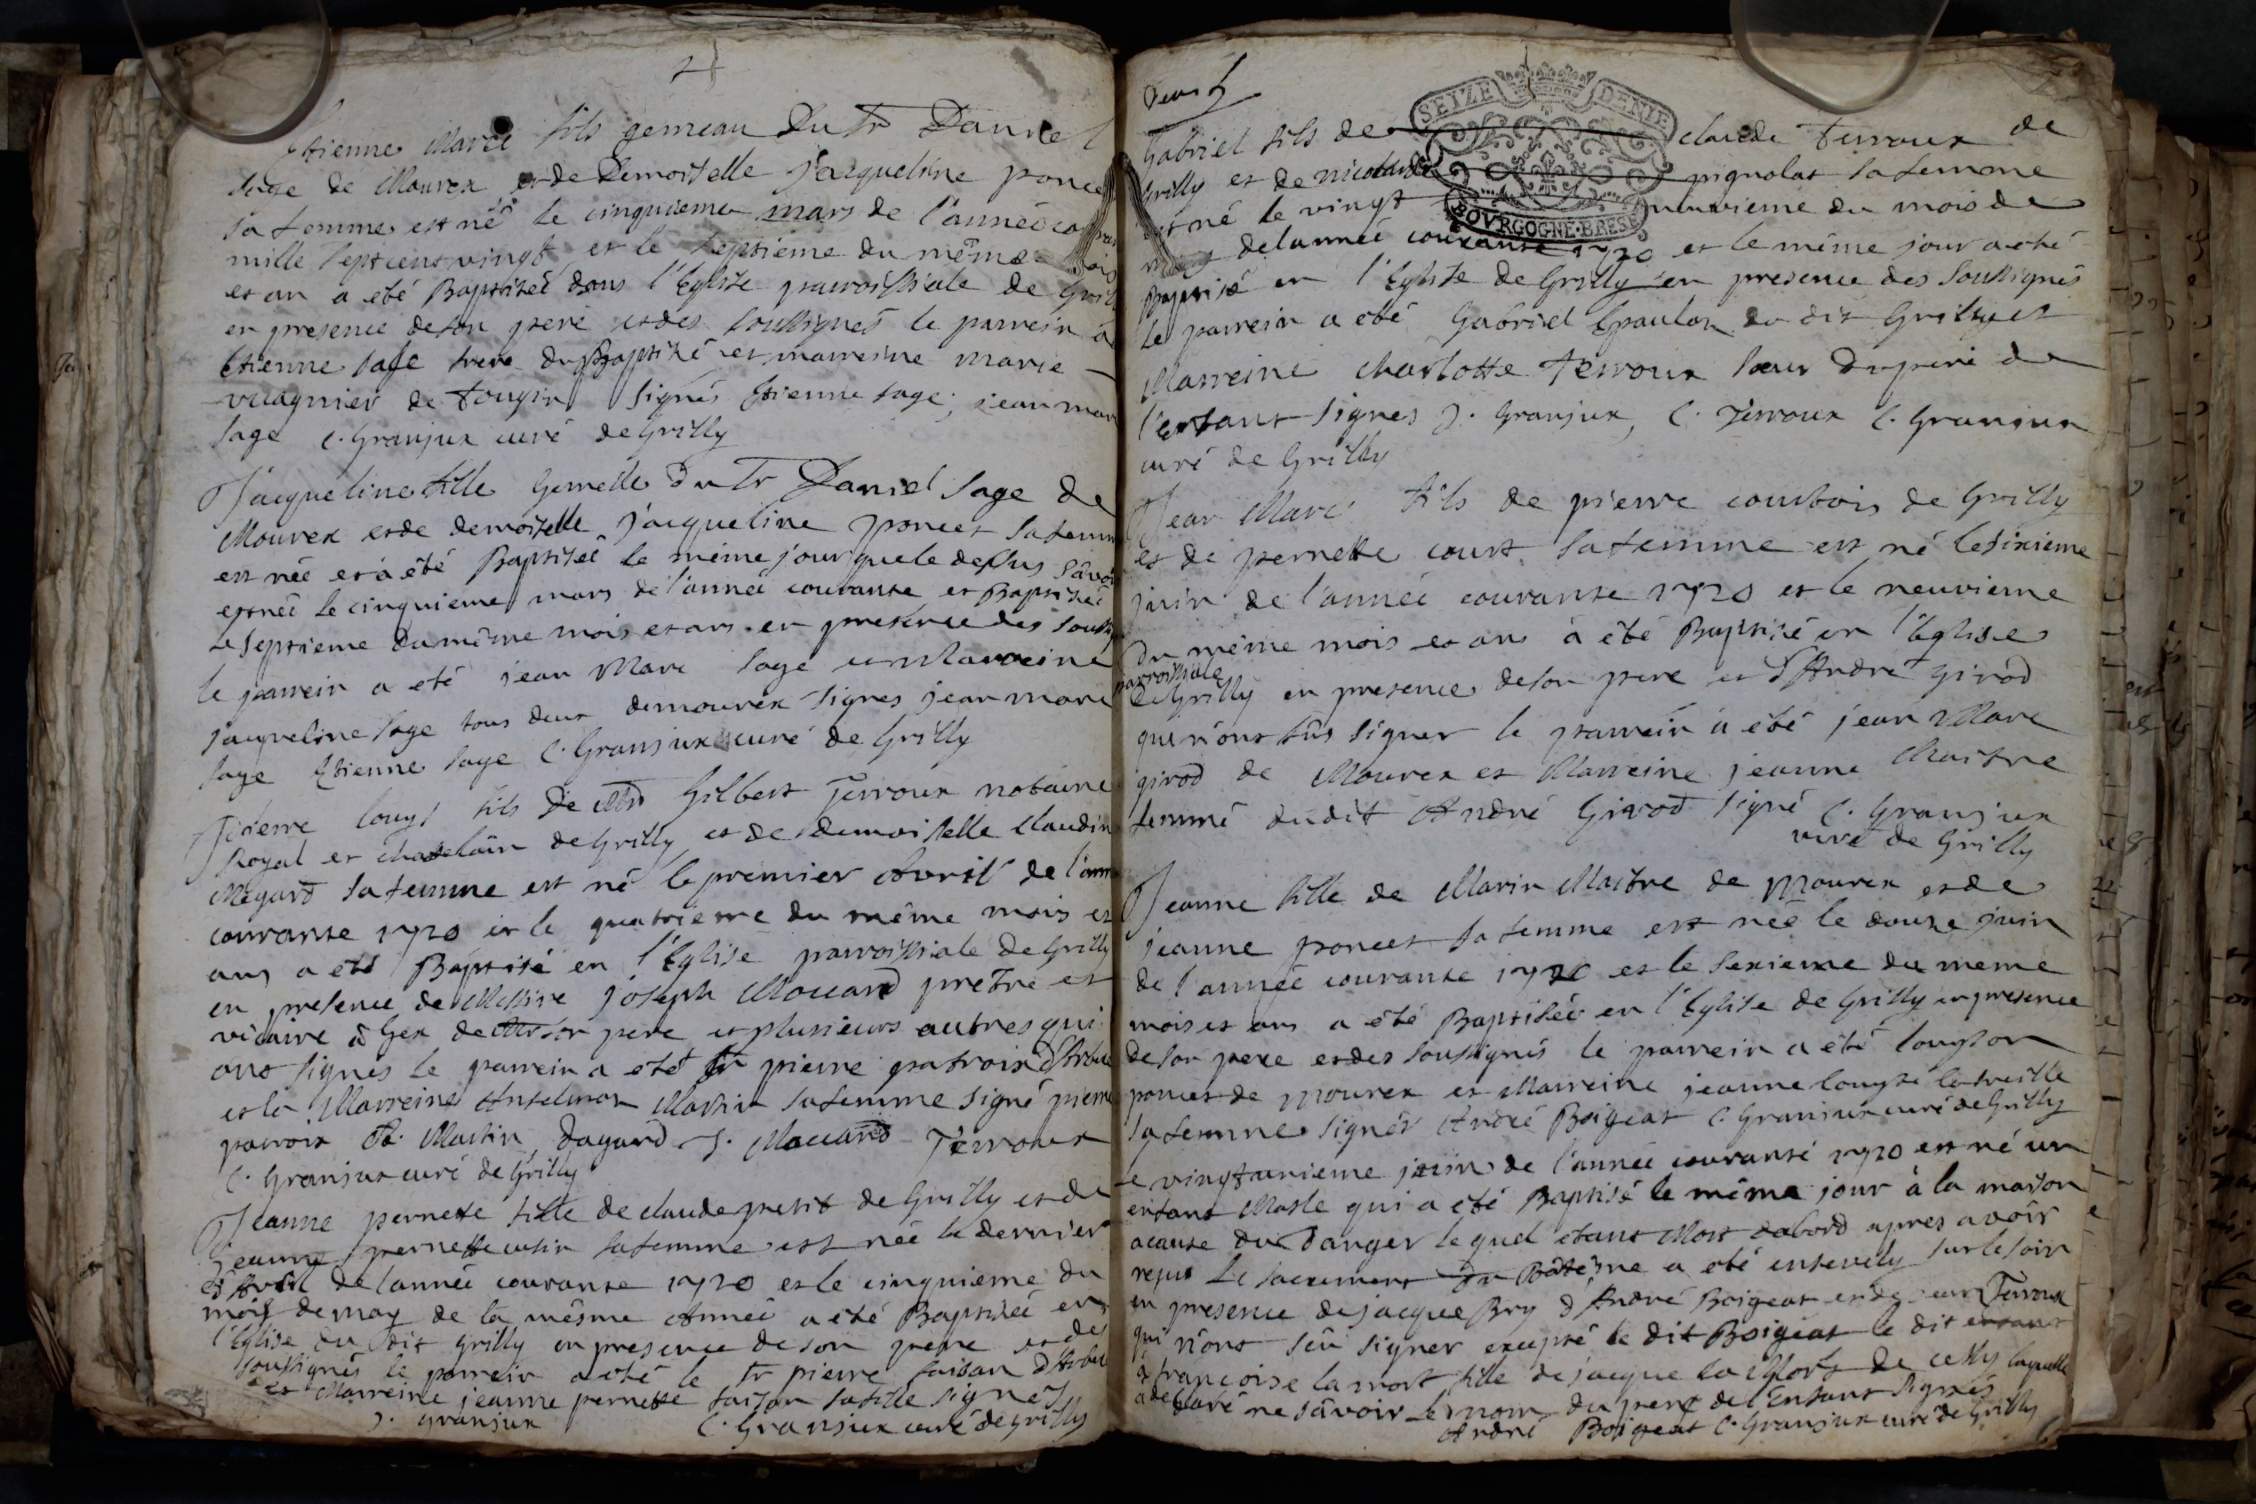 2
Etienne Marie fils gemeau Du Sr Daniel
Sage de Mourex et de Demoiselle jacqueline poncet
sa femme est né le cinquieme mars de l'année
mille sept cent vingt et le septieme du même mois
et an a eté Baptisé dans l'Eglise parroissiale de Grilly
en presence de son pere et des soussignés le parrein a
Etienne sage frere du Baptizé et marreine marie
vuagnier de tougin signés Etienne sage, jean marc
sage C. Granjux curé de Grilly
Jacqueline fille Gemelle du Sr Daniel Sage de
Mourex et de demoiselle jacqueline poncet sa femme
est née et a été Baptisée le même jour que le dessus
est née le cinquieme mars de l'année courante et Baptisée
le septieme du même mois et an en presence des
le parrein a eté jean Marc sage et Marreine
jacqueline sage tous deux de mourex signes jean marc
sage Etienne sage C. Granjux curé de Grilly
Pierre louys fils de Gilbert Terroux notaire
Royal et chatelain de Grilly et de demoiselle Claudine
Megard sa femme est né le premier Avril de l'année
courante 1720 et le quatrieme du même mois et
an a eté Baptisé en l'Eglise parroissiale de Grilly
en presence de Messire joseph Mouard pretre et
vicaire à Gex de pere et plusieurs autres qui
ont signés le parrein a eté pierre
et la Marreine Martin sa femme signé pierre
Martin dagard J. Mouard Terroux
C. Granjux curé de Grilly
Jeanne pernette fille de claude petit de Grilly et de
jeanne pernette sa femme est née le dernier
d'Avril de l'année courante 1720 et le cinquieme du
mois de may de la même Année a eté Baptisée en
l'Eglise du dit Grilly en presence de son pere et des
soussignés le parrein a eté le Sr pierre faisan
et Marreine jeanne pernette faisan sa fille signes
J. Granjux C. Granjux curé de Grilly
SEIZE DENIE
BOVRGOGNE·BRESSE
Gabriel fils de claude Terroux de
Grilly et de pignolat sa femme
est né le vingt neuvieme du mois de
de l'année courante 1720 et le même jour a eté
Baptisé en l'Eglise de Grilly en presence des soussignés
Le parrein a eté Gabriel du dit Grilly et
Marreine charlotte Terroux sœur du pere de
l'enfant signes J. Granjux, C. Terroux C. Granjux
curé de Grilly
Jean Marc fils de pierre courtois de Grilly
et de pernette court sa femme est né le sixieme
juin de l'année courante 1720 et le neuvieme
du même mois et an a été Baptisé en l'Eglise
parroissiale
de Grilly en presence de son pere et d'André girod
qui n'ont sûs signer le parrein a eté jean Marc
girod de Mourex et Marreine jeanne Maitre
femme du dit André Girod signé C. Granjux
curé de Grilly
Jeanne fille de Marin Maitre de Mourex et de
jeanne poncet sa femme est née le douze juin
de l'année courante 1720 et le sexieme du meme
mois et an a été Baptisée en l'Eglise de Grilly en presence
de son pere et des soussignés le parrein a été
poncet de Mourex et Marreine jeanne
sa femme signés André Boigeat C. Granjux curé de Grilly
Le vingtunieme juin de l'année courante 1720 est né un
enfant Masle qui a eté Baptisé le même jour à la maison
a cause du danger le quel etant Mort dabord apres avoir
reçus Le sacrement de Bâtême a eté ensevely sur le soir
en presence de jacque Bry d'André Boigeat et de Terroux
qui n'ont sçu signer excepté le dit Boigeat le dit enfant
francoise la mort fille de jacque la Mort de laquelle
a declaré ne sâvoir le nom du pere de l'Enfant signés
André Boigeat C. Granjux curé de Grilly